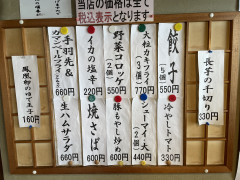 当店の価格は全て
税込表示となります。
長芋の千切り
330円
餃子
(5個) 550円
冷やしトマト
330円
大粒カキフライ
(3個) 770円
シューマイ(大)
(2個) 440円
野菜コロッケ
(2個) 550円
豚もやし炒め
660円
イカの塩辛
220円
焼さば
570円
手羽先&
カマンベールフライ
660円
生ハムサラダ
660円
鳳凰卵のゆで玉子
160円